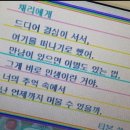 채리에게
드디어 결심이 서서,
여기를 떠나기로 했어.
만남이 있으면 이별도 있는 법,
그게 바로 인생이란 거야.
너의 추억 속에서
난 언제까지 머물 수 있을까.